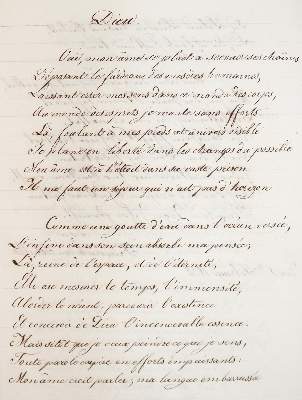 Dieu
Oui, mon âme se plaît à secouer ses chaînes
Déposant le fardeau des misères humaines,
Laissant errer mes sens dans ce monde des corps,
Au monde des esprits je monte sans efforts.
Là, foulant à mes pieds cet univers visible
Je plane en liberté dans les champs du possible
Mon âme est à l'étroit dans sa vaste prison
Il me faut un séjour qui n'ait pas d'horizon
Comme une goutte d'eau dans l'océan versée,
L'infini dans son sein absorbe ma pensée,
Là, reine de l'espace, et de l'éternité,
Elle ose mesurer le temps, l'immensité,
Aborder le néant, parcourir l'existence
Et concevoir de Dieu l'inconcevable essence.
Mais sitôt que je veux peindre ce que je sens,
Toute parole expire en efforts impuissants:
Mon âme croit parler; ma langue embarrassée